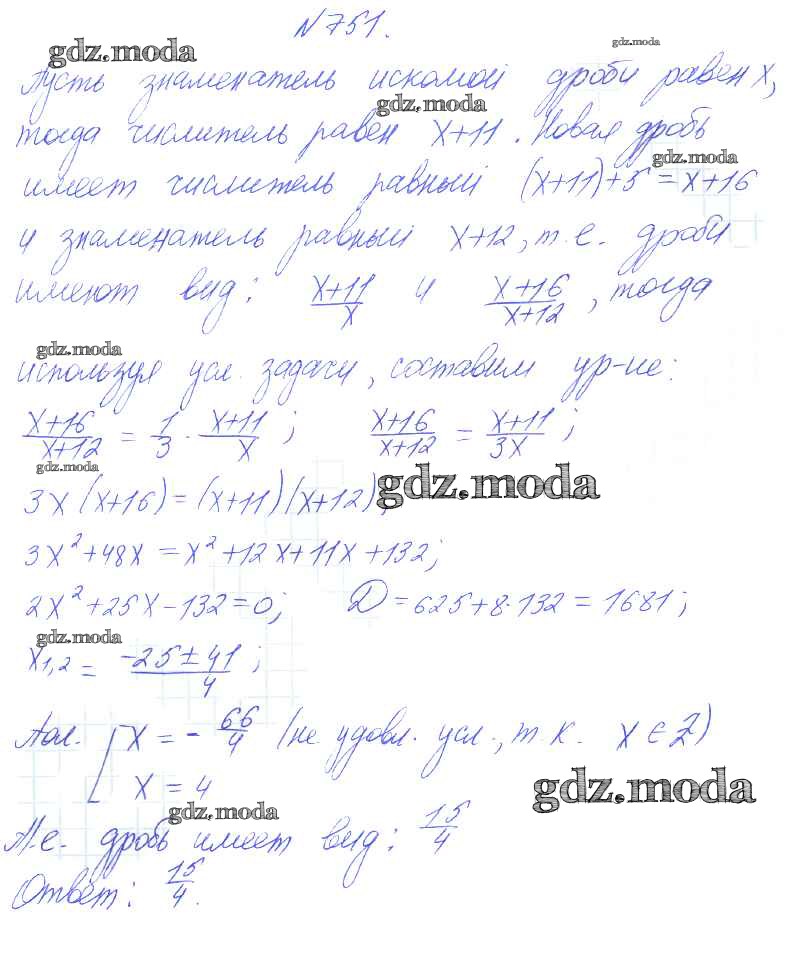 N751.
gdz.moda
gdz.moda
Пусть знаменатель искомой дроби равен x,
gdz.moda
тогда числитель равен x+11. Новая дробь
gdz.moda
имеет числитель равный (x+11)+5=x+16
и знаменатель равный x+12, т.е. дроби
имеют вид: (x+11)/x и (x+16)/(x+12), тогда
gdz.moda
используя усл. задачи, составим ур-ие:
(x+16)/(x+12) = 1/3 · (x+11)/x ; (x+16)/(x+12) = (x+11)/3x ;
gdz.moda
gdz.moda
3x(x+16)=(x+11)(x+12);
3x²+48x=x²+12x+11x+132;
2x²+25x-132=0; D=625+8·132=1681;
gdz.moda
x1,2 = (-25±41)/4 ;
[ x = - 66/4 (не удовл. усл., т.к. x∈Z)
x = 4
gdz.moda
gdz.moda
Т.е. дробь имеет вид: 15/4
Ответ: 15/4.